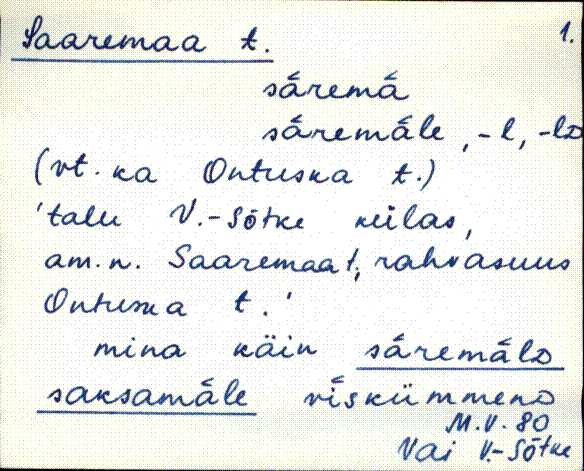 Saaremaa t. 1.
sāremā
sāremāle, -l, -lᴅ
(vt. ka Ontuska t.)
'talu V.-Sõtke külas,
am.n. Saaremaa t., rahvasuus
Ontuska t.'
mina käin sāremālᴅ
saksamāle vīskümmenᴅ
M.V. 80
Vai V.-Sõtke